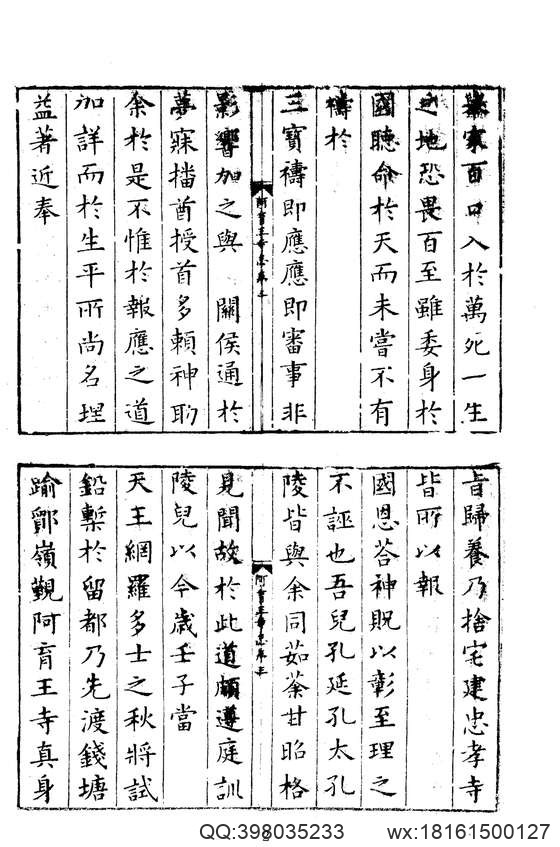 家百口入於萬死一生
之地恐畏百至雖委身於
國聽命於天而未嘗不有
禱於
三寶禱即應應即審事非
影響加之與 關侯通於
夢寐播酋授首多賴神助
余於是不惟於報應之道
加詳而於生平所尚名理
益著近奉
阿育王寺志卷三
旨歸養乃捨宅建忠孝寺
皆所以報
國恩荅神貺以彰至理之
不誣也吾兒孔延孔太孔
陵皆與余同茹荼甘昭格
見聞故於此道頗遵庭訓
陵兒以今歲壬子當
天王網羅多士之秋將試
鉛槧於留都乃先渡錢塘
踰鄮嶺覲阿育王寺真身
阿育王寺志卷三
QQ:398035233
wx:18161500127